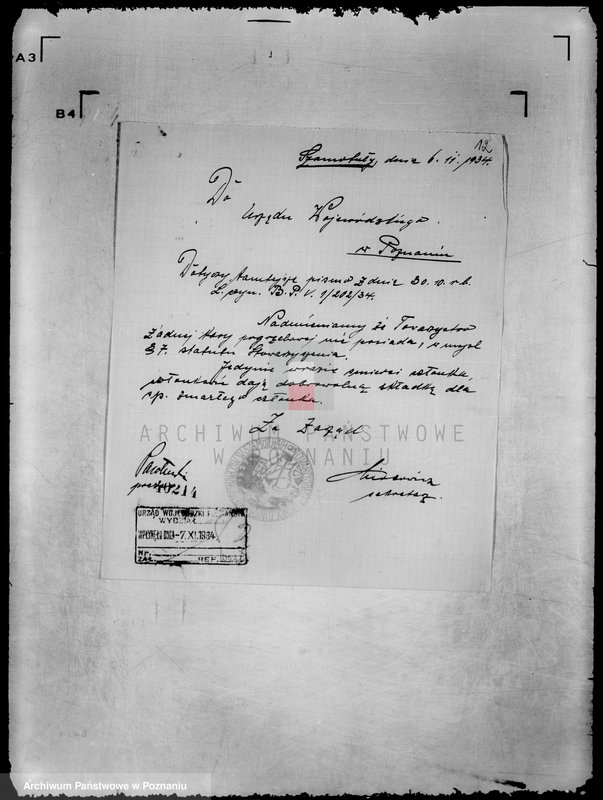 A3
B4
12
Szamotuły, dnia 6. 11. 1934.
Do
Urzędu Wojewódzkiego
w Poznaniu
Dotyczy tamtejsze pismo z dnia 30. 10. r. b.
L. dzn. B. P. V. 1/202/34.
Nadmieniamy że Towarzystwo
żadnej kasy pogrzebowej nie posiada, w myśl
§ 7. statutu Stowarzyszenia.
Jedynie w razie śmierci członka,
członkowie dają dobrowolną składkę dla
śp. zmarłego członka.
Za Zarząd
ARCHIWUM PAŃSTWOWE
W POZNANIU
sekretarz
40214
URZĄD WOJEWÓDZKI
WYDZIAŁ
WPŁYNĘŁO DNIA -7. XI. 1934
Nr.
ZAŁ. REF.
Archiwum Państwowe w Poznaniu